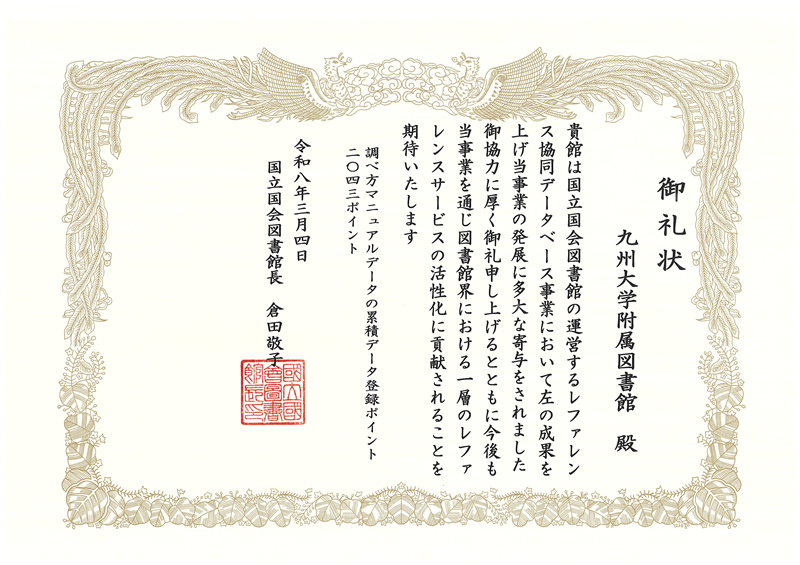 御礼状
九州大学附属図書館　殿
貴館は国立国会図書館の運営するレファレン
ス協同データベース事業において左の成果を
上げ当事業の発展に多大な寄与をされました
御協力に厚く御礼申し上げるとともに今後も
当事業を通じ図書館界における一層のレファ
レンスサービスの活性化に貢献されることを
期待いたします
調べ方マニュアルデータの累積データ登録ポイント
二〇四三ポイント
令和八年三月四日
国立国会図書館長　倉田敬子
國立國
會圖書
館長印